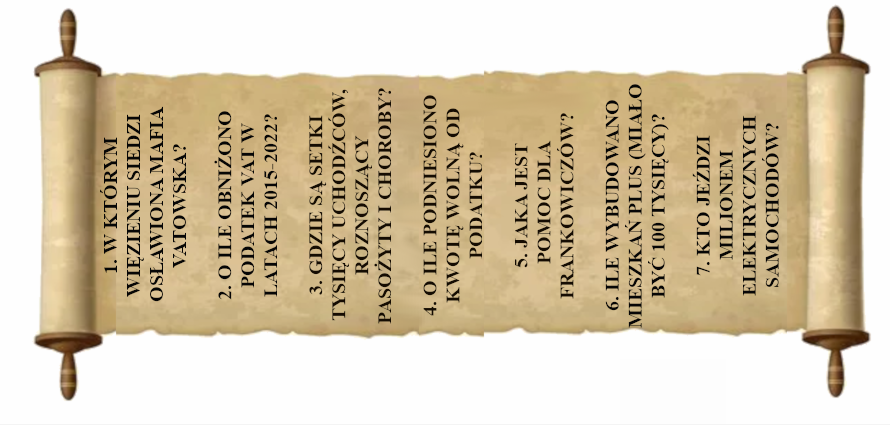 1. W KTÓRYM
WIĘZIENIU SIEDZI
OSŁAWIONA MAFIA
VATOWSKA?
2. O ILE OBNIŻONO
PODATEK VAT W
LATACH 2015-2022?
3. GDZIE SĄ SETKI
TYSIĘCY UCHODŹCÓW,
ROZNOSZĄCY
PASOŻYTY I CHOROBY?
4. O ILE PODNIESIONO
KWOTĘ WOLNĄ OD
PODATKU?
5. JAKA JEST
POMOC DLA
FRANKOWICZÓW?
6. ILE WYBUDOWANO
MIESZKAŃ PLUS (MIAŁO
BYĆ 100 TYSIĘCY)?
7. KTO JEŹDZI
MILIONEM
ELEKTRYCZNYCH
SAMOCHODÓW?